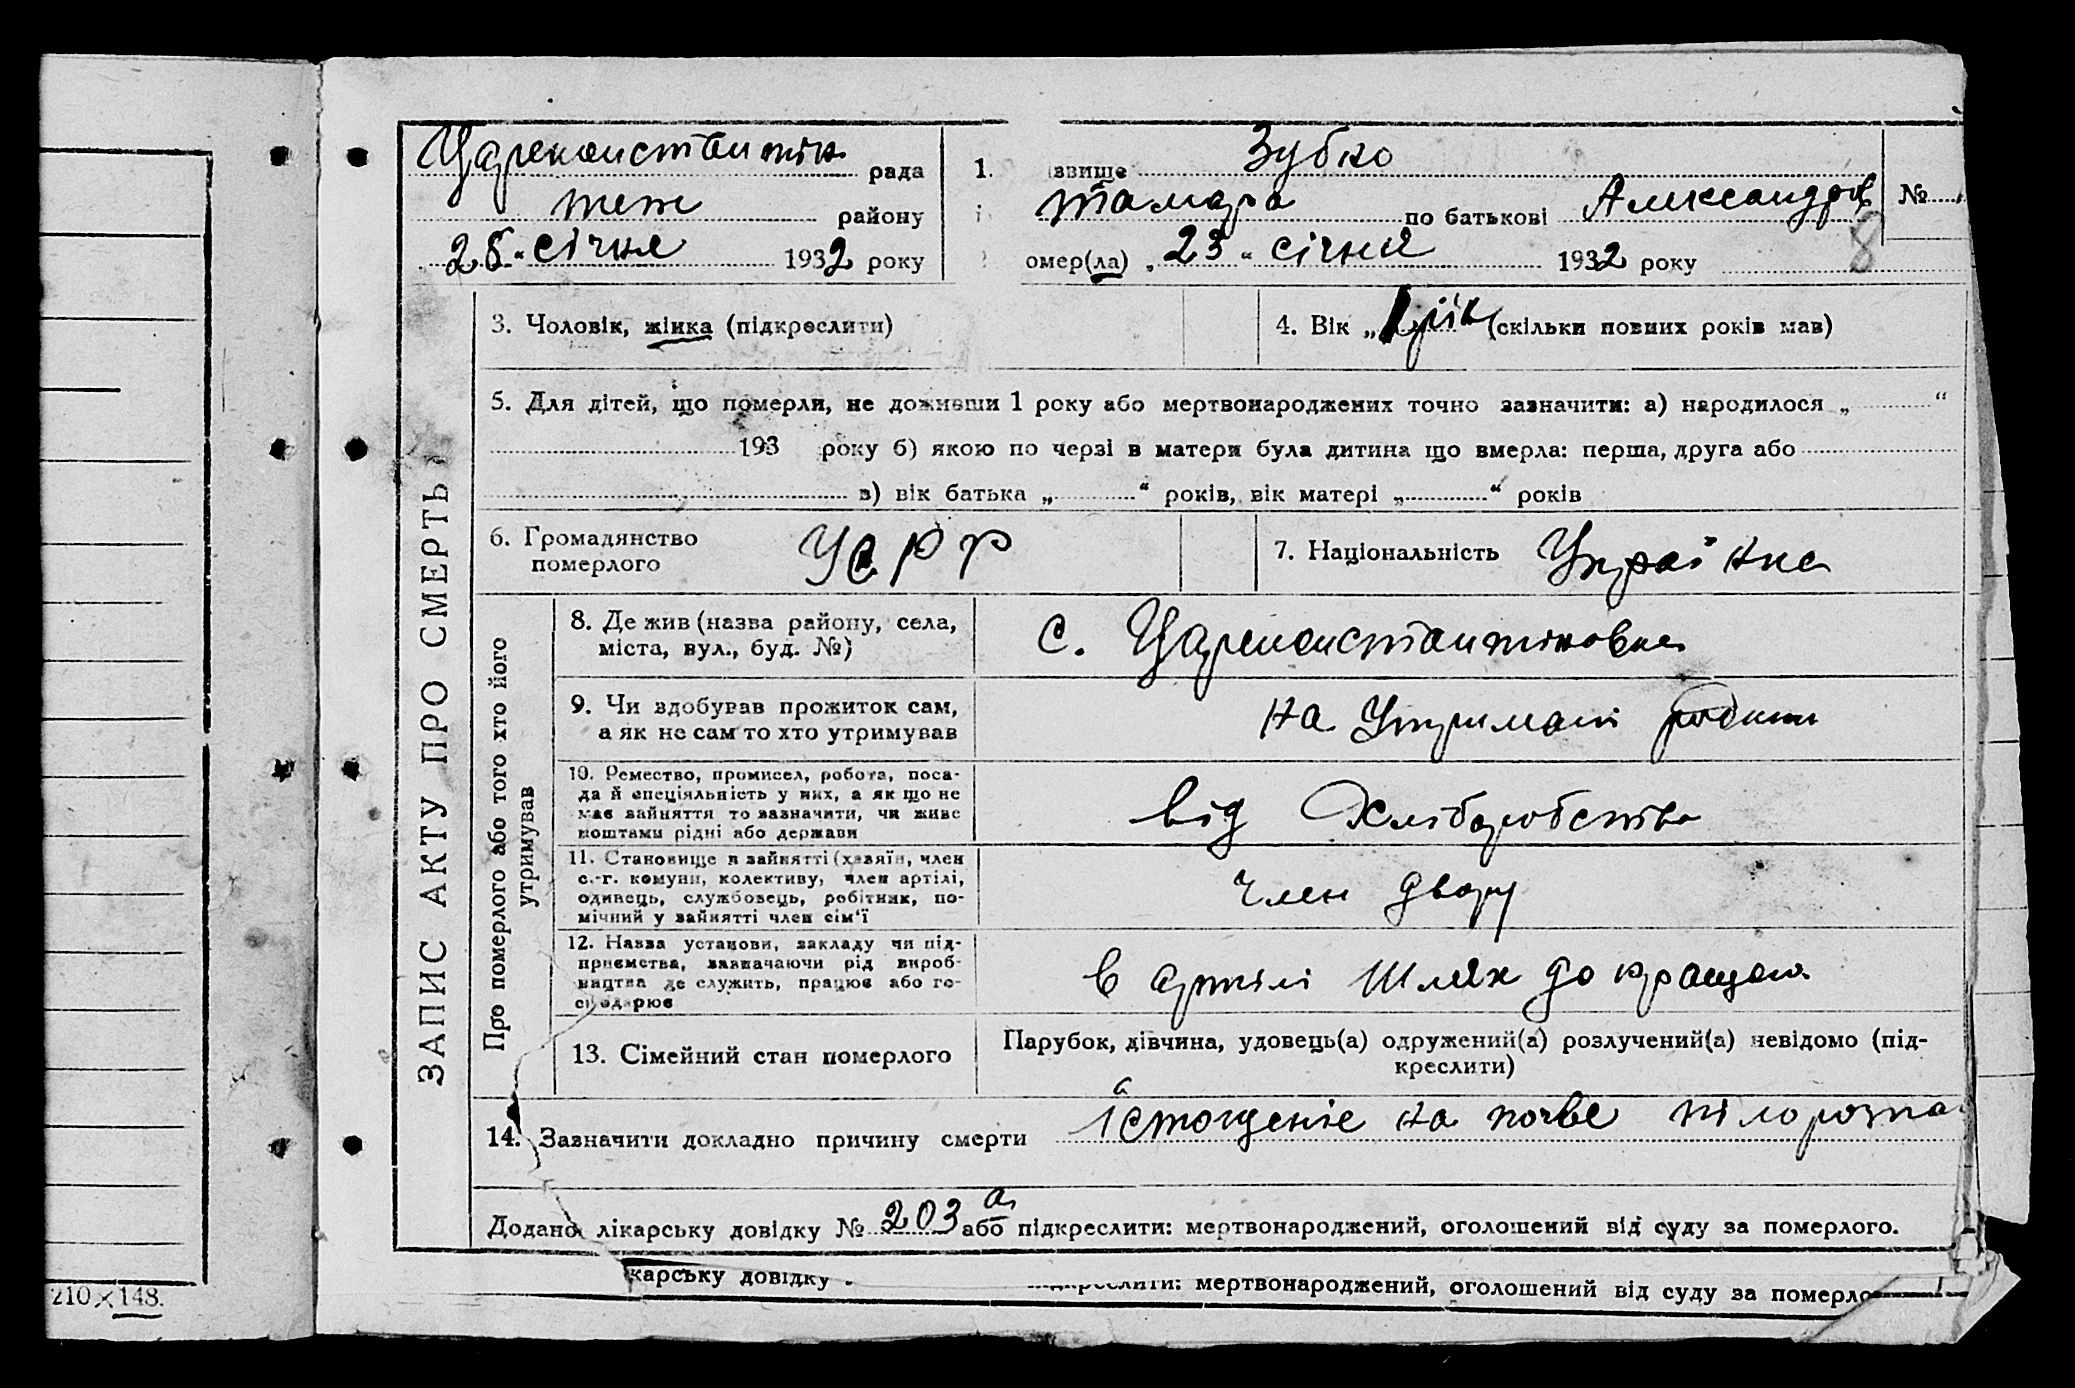 Цареконстантин рада
теж району
25 „ січня 1932 року
1. ізвище Зубко
Тамара по батькові Александров
омер(ла) „ 23 “ січня 1932 року
№
8
ЗАПИС АКТУ ПРО СМЕРТЬ
3. Чоловік, жінка (підкреслити)
4. Вік „ 1 рік (скільки повних років мав)
5. Для дітей, що померли, не доживши 1 року або мертвонароджених точно зазначити: а) народилося „ “
193 року б) якою по черзі в матери була дитина що вмерла: перша, друга або
в) вік батька „ “ років, вік матері „ “ років
6. Громадянство
померлого
УСРР
7. Національність Українка
Про померлого або того хто його
утримував
8. Де жив (назва району, села,
міста, вул., буд. №)
с. Цареконстантиновка
9. Чи здобував прожиток сам,
а як не сам то хто утримував
на утримані родини
10. Ремество, промисел, робота, поса-
да й спеціяльність у них, а як що не
має зайняття то зазначити, чи живе
коштами рідні або держави
від Хліборобства
11. Становище в зайнятті (хазяїн, член
с.-г. комуни, колективу, член артілі,
одинець, службовець, робітник, по-
мічний у зайнятті член сім'ї
член двору
12. Назва установи, закладу чи під-
приємства, зазначаючи рід вироб-
ництва де служить, працює або го-
сподарює
в артілі Шлях до кращого
13. Сімейний стан померлого
Парубок, дівчина, удовець(а) одружений(а) розлучений(а) невідомо (під-
креслити)
14. Зазначити докладно причину смерти істощеніе на почве
Додано лікарську довідку № 203 а або підкреслити: мертвонароджений, оголошений від суду за померлого.
карську довідку підкреслити: мертвонароджений, оголошений від суду за померло
210×148.